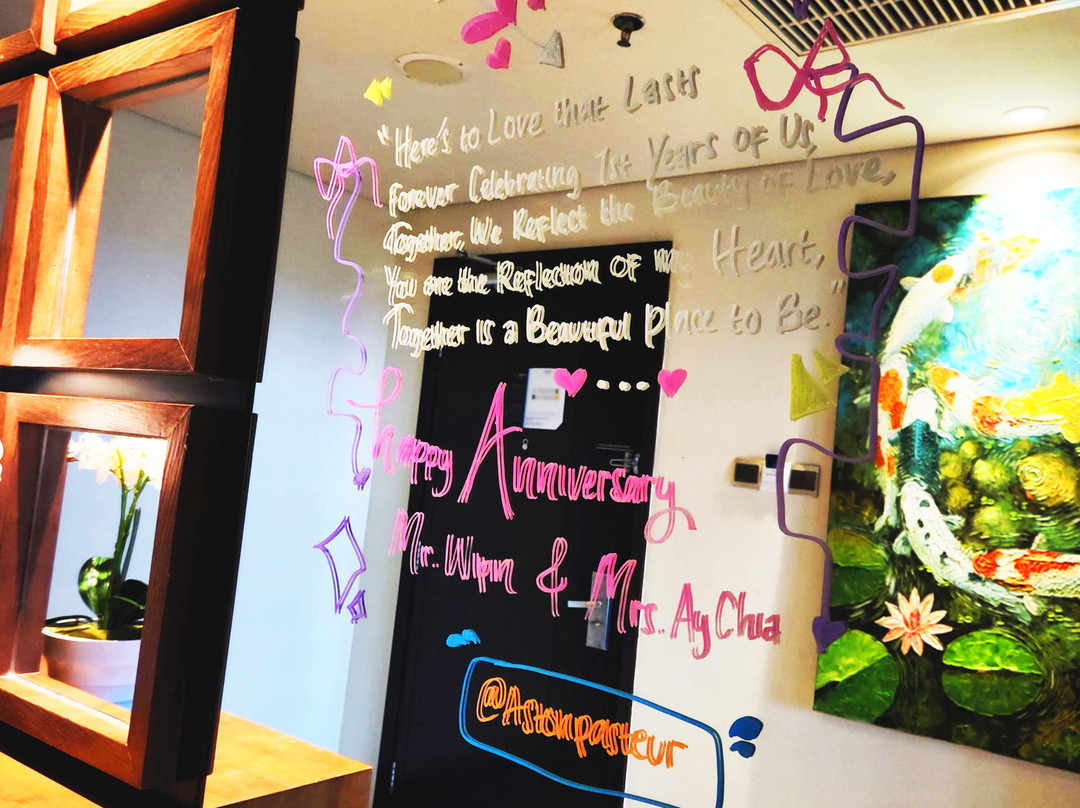 "Here's to Love that Lasts
Forever Celebrating 1st Years of Us,
Together, We Reflect the Beauty of Love,
You are the Reflection of my Heart,
Together is a Beautiful Place to Be."
Happy Anniversary
Mr. Wipin & Mrs. Ay Chua
@Astonpasteur